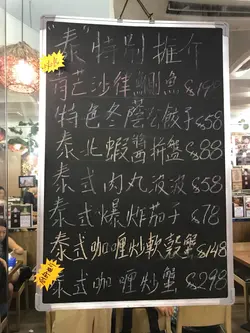 "泰"特別推介
青芒沙律鯏魚 $198
特色冬蔭公餃子 $58
泰北蝦醬拼盤 $88
泰式肉丸波波 $58
泰式爆炸茄子 $78
泰式咖喱炒軟殼蟹 $148
泰式咖喱炒蟹 $298